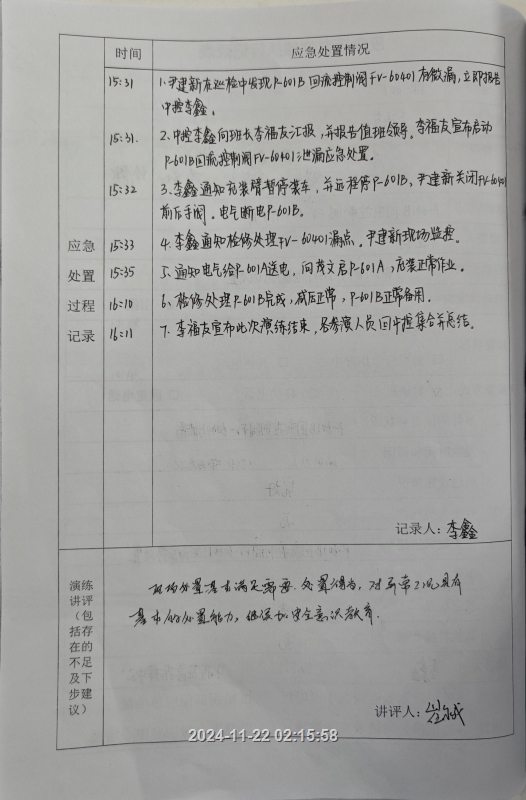 时间 应急处置情况
15:31 1.尹建新在巡检中发现P-601B回流控制阀FV-60401有微漏,立即报告
中控李鑫。
15:31. 2.中控李鑫向班长李福友汇报,并报告值班领导。李福友宣布启动
P-601B回流控制阀FV-60401泄漏应急处置。
15:32 3.李鑫通知充装臂暂停装车,并远程停P-601B,尹建新关闭FV-60401
前后手阀。电气断电P-601B。
15:33 4.李鑫通知检修处理FV-60401漏点。尹建新现场监控。
15:35 5.通知电气给P-601A送电,问茂文启P-601A,充装正常作业。
16:10 6、检修处理P-601B完成,试后正常,P-601B正常备用。
16:11 7.李福友宣布此次演练结束,各参演人员回中控集合并总结。
应急
处置
过程
记录
记录人:李鑫
演练
讲评
(包
括存
在的
不足
及下
步建
议)
现场处置基本满足需要、处置得当,对异常工况具有
基本的处置能力,继续加强安全意识教育.
讲评人:
2024-11-22 02:15:58